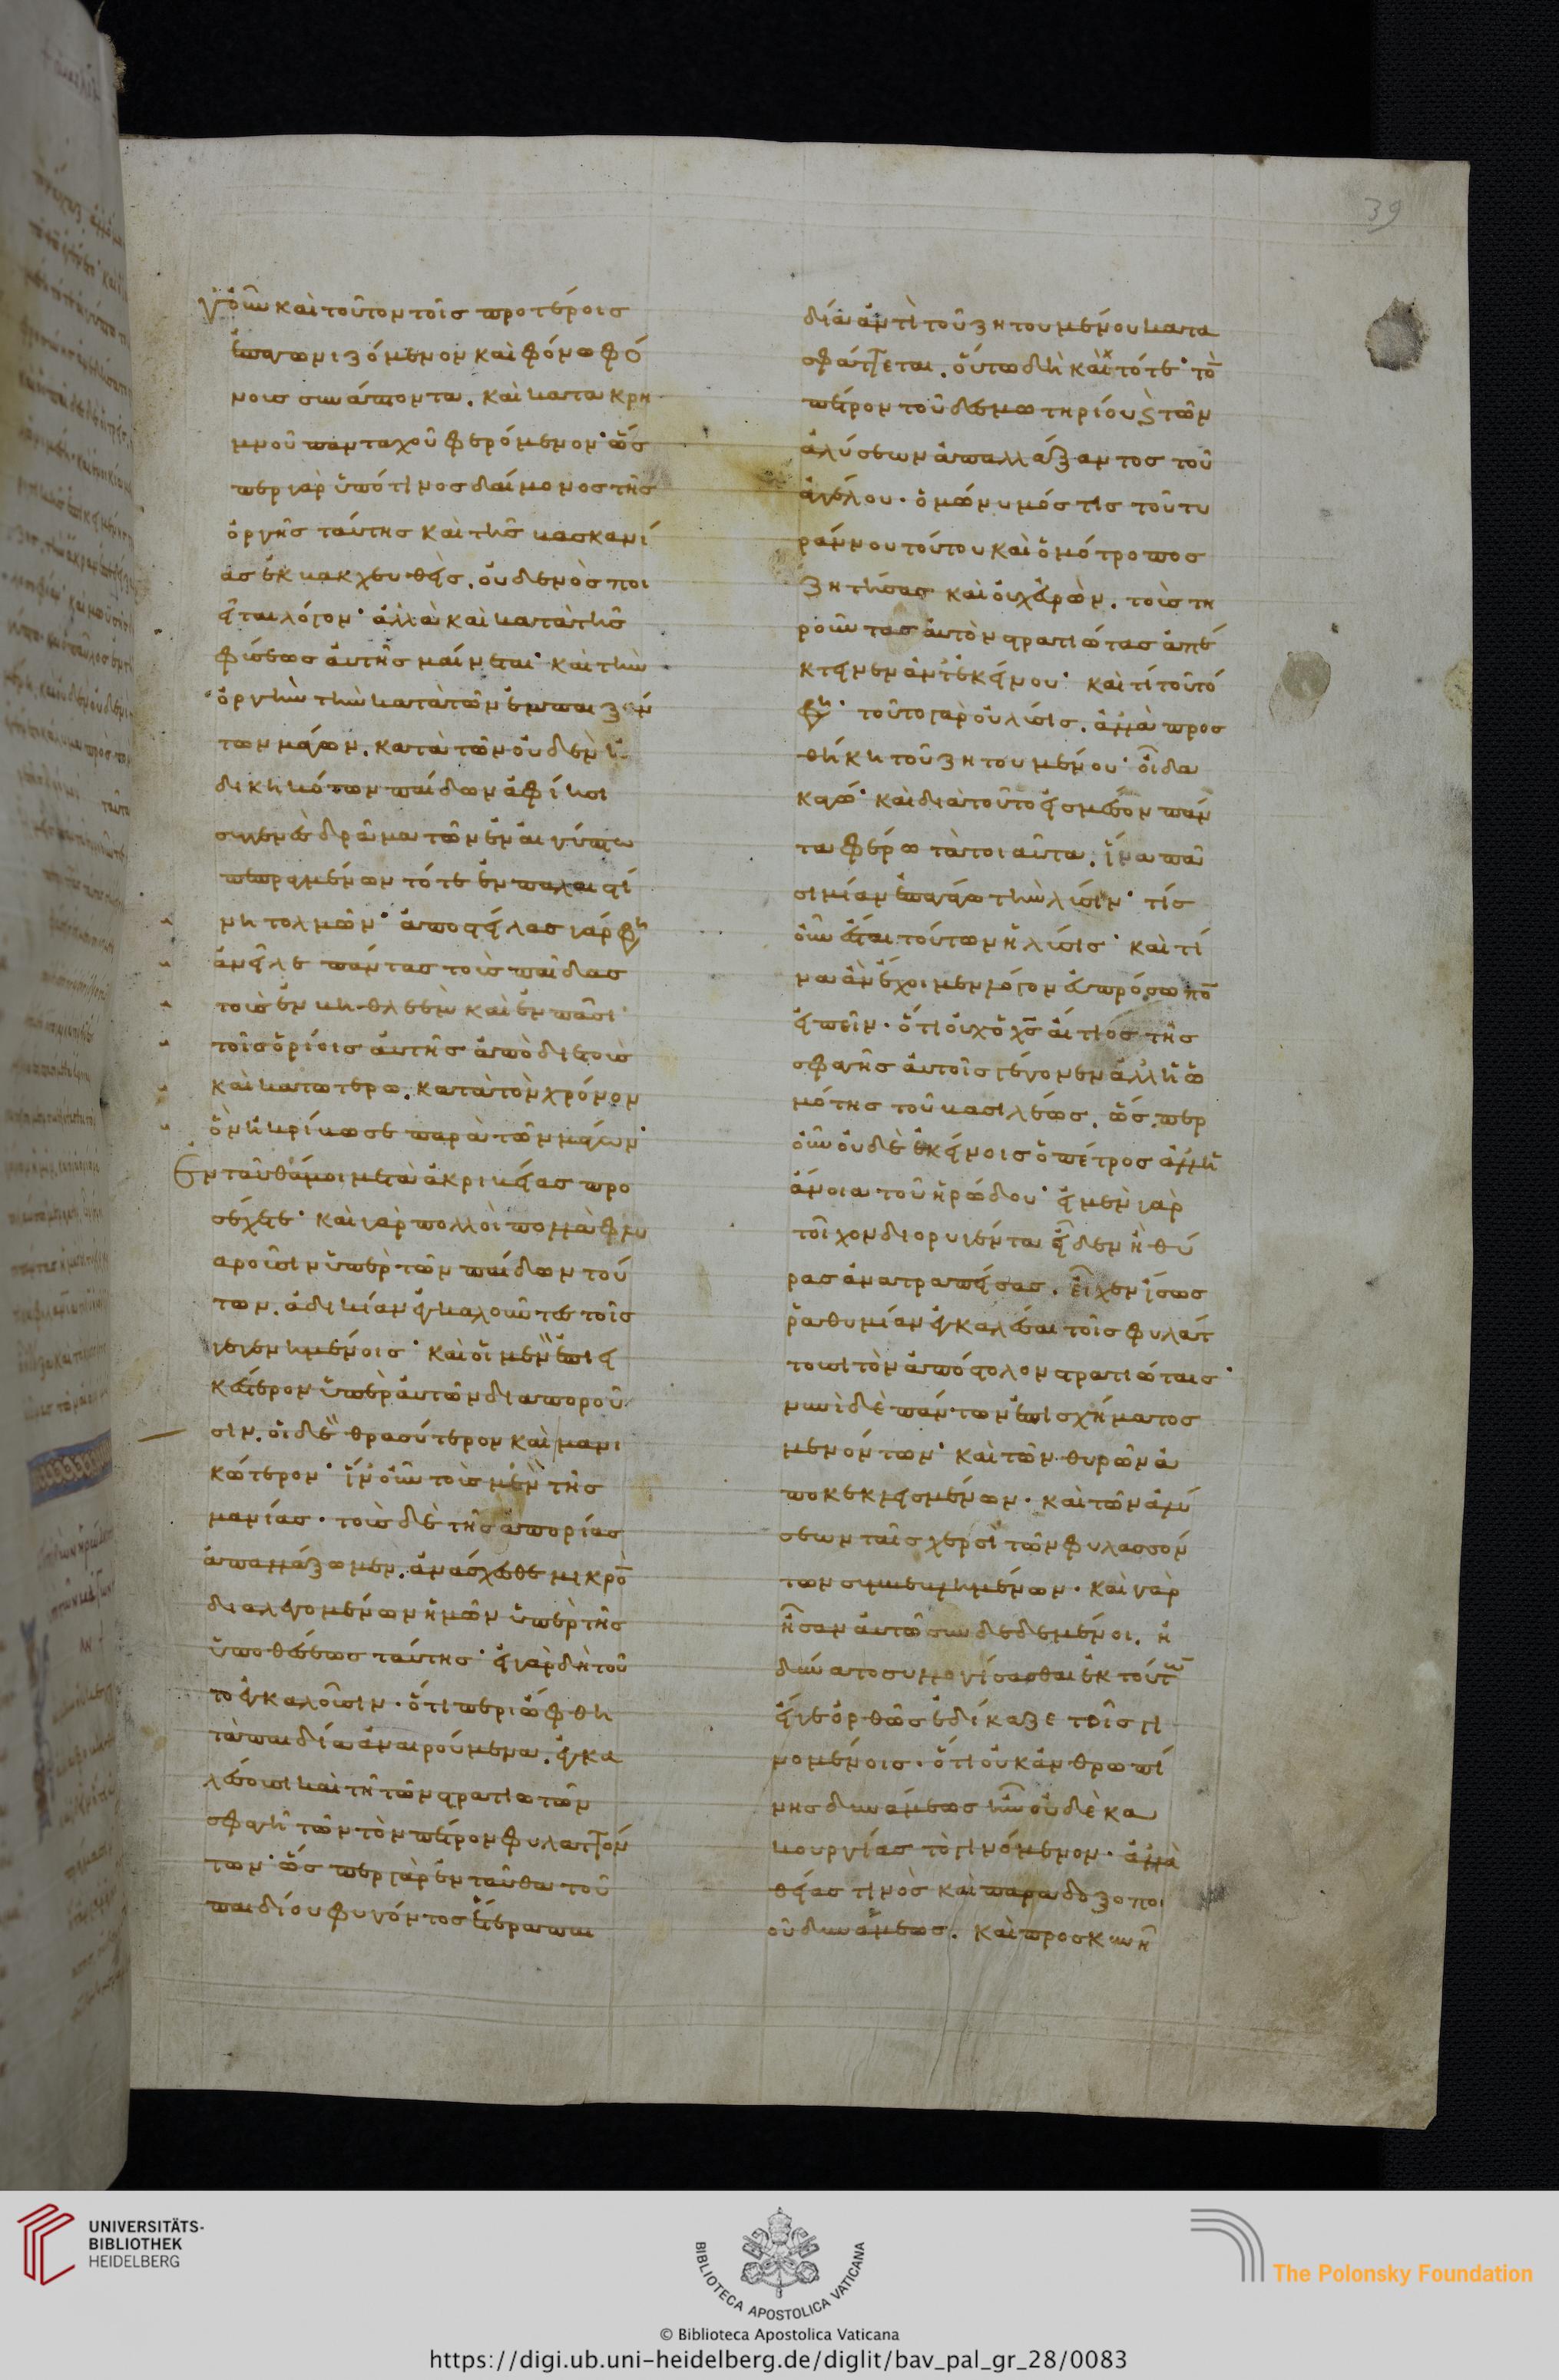 οὖν καὶ τοῦτον τοῖς προτέροις
ἐπαγωνιζόμενον καὶ φόνω φό
νοις συνάπτοντα. καὶ κατα κρη
μνοῦ πανταχοῦ φερόμενον· ὥσ
περ γὰρ ὑπό τινος δαίμονος τῆς
ὀργῆς ταύτης καὶ τῆς βασκανί
ας ἐκβακχευθείς. οὐδενὸς ποι
εῖται λόγον· ἀλλὰ καὶ κατὰ τῆς
φύσεως αὐτῆς μαίνεται· καὶ τὴν
ὀργὴν τὴν κατὰ τῶν ἐμπαιξάν
των μάγων. κατὰ τῶν οὐδὲν ἠ
δικηκότων παίδων ἀφίησι
συγγενὲς δρᾶμα τῶν ἐν αἰγύπτω
πεπραγμένων τότε ἐν παλαιστί
νη τολμῶν· ἀποστείλας γάρ φη
ἀνεῖλε πάντας τοὺς παῖδας
τοὺς ἐν βηθλεὲμ καὶ ἐν πᾶσι
τοῖς ὁρίοις αὐτῆς ἀπὸ διετοῦς
καὶ κατωτέρω. κατὰ τὸν χρόνον
ὃν ἠκρίβωσε παρὰ τῶν μάγων·
Ἐνταῦθά μοι μετὰ ἀκριβείας προ
σέχετε· καὶ γὰρ πολλοὶ πολλὰ φλυ
αροῦσιν ὑπὲρ τῶν παίδων τού
των. ἀδικίαν ἐγκαλοῦντες τοῖς
γεγενημένοις· καὶ οἱ μὲν ἐπιει
κέστερον ὑπὲρ αὐτῶν διαποροῦ
σιν. οἱ δὲ θρασύτερον καὶ μανι
κώτερον· ἵν οὖν τοὺς μὲν τῆς
μανίας. τοὺς δὲ τῆς ἀπορίας
ἀπαλλάξωμεν. ἀνάσχεσθε μικρὸ
διαλεγομένων ἡμῶν ὑπὲρ τῆς
ὑποθέσεως ταύτης· εἰ γὰρ δὴ τοῦ
το ἐγκαλοῦσιν. ὅτι περιώφθη
τὰ παιδία ἀναιρούμενα. ἐγκα
λέσουσι καὶ τῆ τῶν στρατιωτῶν
σφαγῆ τῶν τὸν πέτρον φυλαττόν
των· ὥσπερ γὰρ ἐνταῦθα τοῦ
παιδίου φυγόντος ἕτερα παι
δία ἀντὶ τοῦ ζητουμένου κατα
σφάττεται. οὕτω δὴ καὶ τότε· τὸ
πέτρον τοῦ δεσμωτηρίου ϗ τῶν
ἁλύσεων ἀπαλλάξαντος τοῦ
ἀγγέλου. ὁμώνυμός τις τοῦ τυ
ράννου τούτου καὶ ὁμότροπος
ζητήσας καὶ οὐχ εὑρὼν. τοὺς τη
ροῦντας αὐτὸν στρατιώτας ἀπέ
κτεινεν ἀντ ἐκείνου· καὶ τί τοῦτό
φη· τοῦτο γὰρ οὐ λύσις. ἀλλὰ προσ
θήκη τοῦ ζητουμένου· οἶδα
κἀγώ· καὶ διὰ τοῦτο εἰς μέσον πάν
τα φέρω τὰ τοιαῦτα. ἵνα πᾶ
σι μίαν ἐπαγάγω τὴν λύσιν· τίς
οὖν ἐστι τούτων ἡ λύσις· καὶ τί
να ἂν ἔχοιμεν λόγον εὐπρόσωπο
εἰπεῖν. ὅτι οὐχ ὁ χς αἴτιος τῆς
σφαγῆς αὐτοῖς γέγονεν ἀλλ ἡ ὠ
μότης τοῦ βασιλέως. ὥσπερ
οὖν οὐδὲ ἐκείνοις ὁ πέτρος ἀλλ ἡ
ἄνοια τοῦ ἡρώδου· εἰ μὲν γὰρ
τοῖχον διορυγέντα εἶδεν ἢ θύ
ρας ἀνατραπείσας. εἶχεν ἴσως
ῥαθυμίαν ἐγκαλέσαι τοῖς φυλάτ
τουσι τὸν ἀπόστολον στρατιώταις·
νυνὶ δὲ πάντων ἐπὶ σχήματος
μενόντων· καὶ τῶν θυρῶν ἀ
ποκεκλεισμένων. καὶ τῶν ἁλύ
σεων ταῖς χερσὶ τῶν φυλασσόν
των συμπεπηγμένων. καὶ γὰρ
ἦσαν αὐτῶ συνδεδεμένοι. ἠ
δύνατο συλλογίσασθαι ἐκ τούτων
εἴγε ὀρθῶς ἐδίκαζε τοῖς γι
νομένοις. ὅτι οὐκ ἀνθρωπί
νης δυνάμεως ἦν οὐδὲ κα
κουργίας τὸ γινόμενον. ἀλλὰ
θείας τινὸς καὶ παραδοξοποι
οῦ δυνάμεως. καὶ προσκυνῆ
39
UNIVERSITÄTS-
BIBLIOTHEK
HEIDELBERG
BIBLIOTECA APOSTOLICA VATICANA
The Polonsky Foundation
© Biblioteca Apostolica Vaticana
https://digi.ub.uni-heidelberg.de/diglit/bav_pal_gr_28/0083